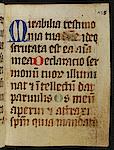 Mirabilia testimo
nia tua ideo
scrutata est ea aīa
mea Declaracio ser
monū tuoꝝ illumi
nat ⁊ ītellectū dat
paruulis Os meū
aperui ⁊ attraxi
spm̄ quia mandata